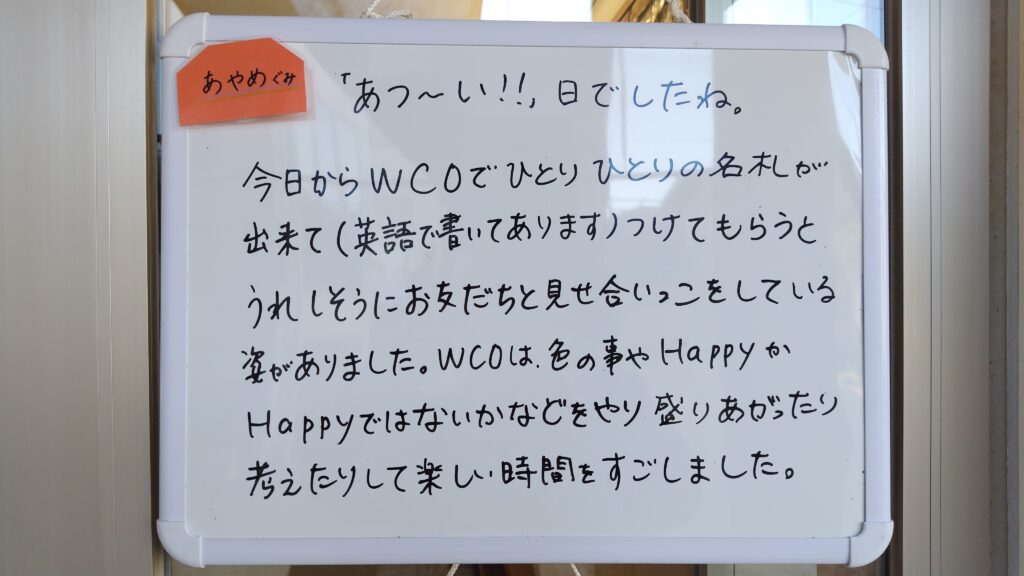 あやめぐみ
「あつ〜い!!」日でしたね。
今日からWCOでひとりひとりの名札が
出来て(英語で書いてあります)つけてもらうと
うれしそうにお友だちと見せ合いっこをしている
姿がありました。WCOは、色の事やHappyか
Happyではないかなどをやり盛りあがったり
考えたりして楽しい時間をすごしました。